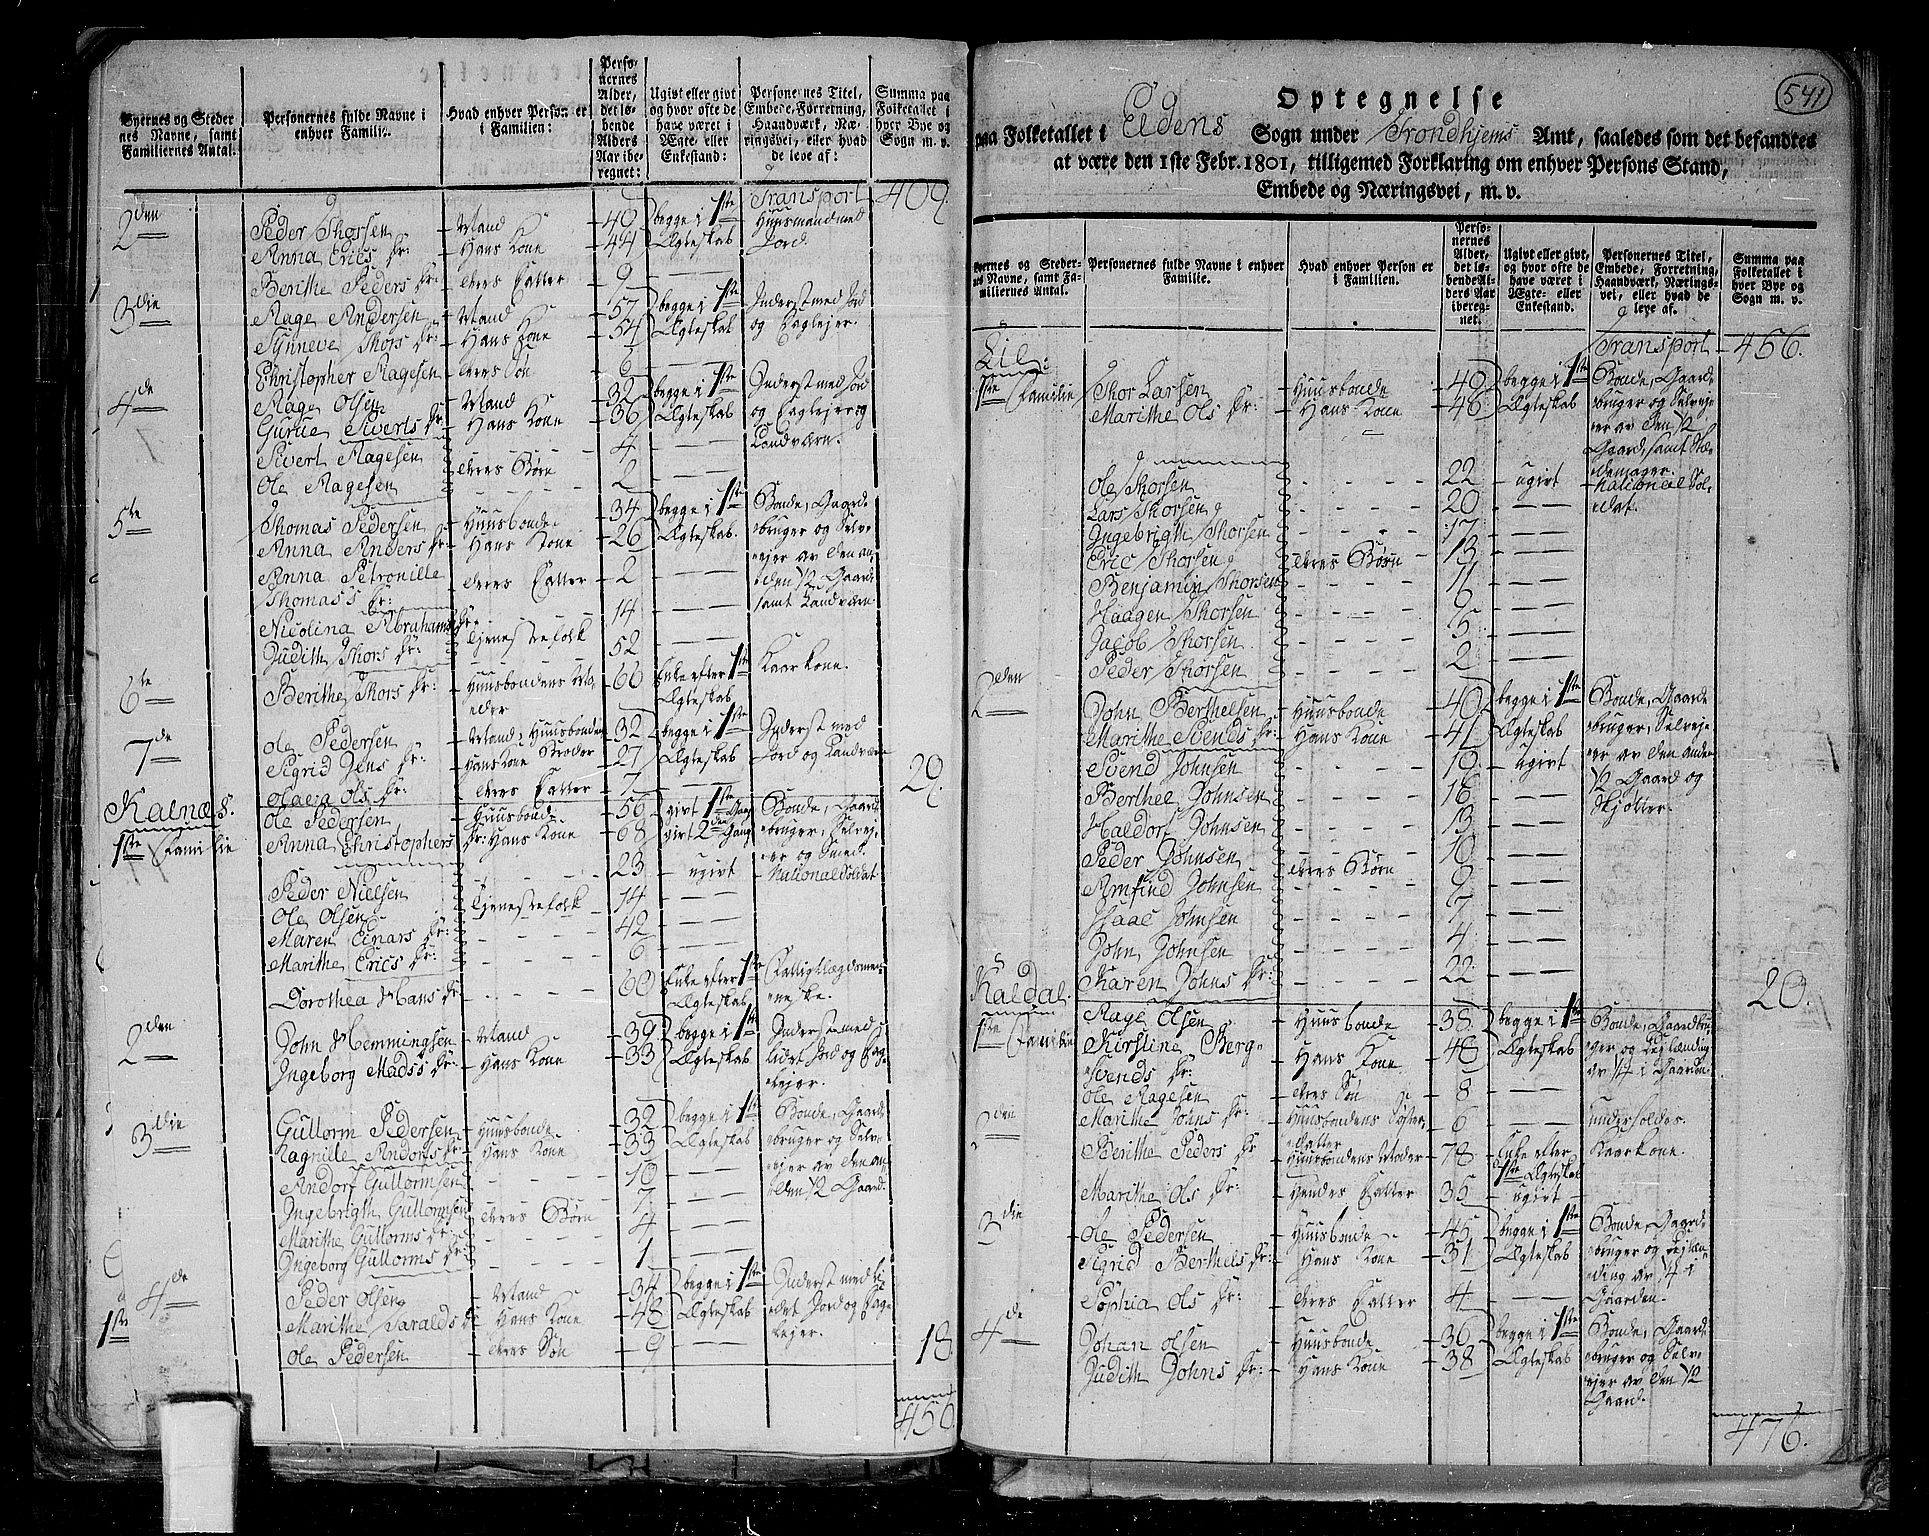 Byernes og Steder nes Navne, samt Familiernes Antal.
Personernes fulde Navne i enhver Familie.
Hvad enhver Person er i Familien:
Perso- nernes Alder, det lø- bende Alders Aar ibe- regnet:
Ugivt eller givt og hvor ofte de have været i Ægte- eller Enkestand:
Personernes Titel, Embede, Forretning, Haandværk, Næ- ringsvei, eller hvad de leve af:
Summa paa Folketallet i hver Bye og Sogn m. v.
Transport 409.
2den Peder Thorsen - Mand - 40 begge i 1ste Huusmand med
Anna Erics Dr: - Hans Kone - 44 Ægteskab Jord.
Berithe Peders Dr: - deres Datter - 9 - —
3die Aage Andersen - Mand - 57 begge i 1ste Inderst med Jord
Synneve Thors Dr: - Hans Kone - 54 Ægteskab og Daglejer.
Christopher Aagesen - deres Søn - 6 - —
4de Aage Olsen - Mand - 32 begge i 1ste Inderst med Jord
Gurue Siverts Dr: - Hans Kone - 36 Ægteskab og Daglejer og
Sivert Aagesen 4 - — Landværn.
Ole Aagesen - deres Børn - 2 - —
5te Thomas Pedersen - Huusbonde - 34 begge i 1ste Bonde, Gaard-
Anna Anders Dr: - Hans Kone - 26 Ægteskab. bruger og Selv-
Anna Petronille ejer av den an-
Thomas's Dr: - deres Datter - 2 - — den 1/2 Gaard
samt Landværn.
Nicolina Abrahams Dr: 14 - —
Judith Thors Dr: Tjenestefolk 52 - —
6te Berithe Thors Dr: - Huusbondens Mo- 66 Enke efter 1ste Kaarkone.
der Ægteskab
7de Ole Pedersen - Mand, Huusbondens 32 begge i 1ste Inderst med
Sigrid Jens Dr: - Hans Kone Broder - 27 Ægteskab Jord og Landværn
Olava Ols Dr: - deres Datter - 7 - — 29.
Kalnæs.
1ste Familie Ole Pedersen - Huusbonde - 56 - givt 1ste Gang Bonde, Gaard-
Anna Christophers Dr: Hans Kone - 68 givt 2den Gang bruger, Selvej-
er og Smed.
Peder Nielsen 23 - ugivt Nationalsoldat
Ole Olsen Tjenestefolk 14 - —
Maren Einars Dr: 42 - —
Marithe Erics Dr: 6 - —
Dorothea Hans Dr 60 Enke efter 1ste Fattigtlægdsmen-
Ægteskab neske.
2den John Hemmingsen - Mand - 39 begge i 1ste Inderst med
Ingeborg Madss Dr: - Hans Kone - 33 Ægteskab lidet Jord og Dag-
lejer.
3die Gullorm Pedersen - Huusbonde - 32 begge i 1ste Bonde, Gaard-
Ragnille Andorfs Dr: - Hans Kone - 33 Ægteskab bruger og Selv-
Andorf Gullormsen 10 - — ejer av den an-
Ingebrigth Gullormsen 7 - — den 1/2 Gaard.
Marithe Gullorms Dr: - deres Børn 4 - —
Ingeborg Gullorms Dr: 1 - —
4de Peder Olsen - Mand - 34 begge i 1ste Inderst med li-
Marithe Haralds Dr - Hans Kone - 48 Ægteskab det Jord og Dag-
1ste Ole Pedersen - deres Søn - 9 - — lejer. 18
456
541
Optegnelse
paa Folketallet i Edens Sogn under Trondhjems Amt, saaledes som det befandtes
at være den 1ste Febr. 1801, tilligemed Forklaring om enhver Persons Stand,
Embede og Næringsvei, m. v.
Byernes og Steder- nes Navne, samt Fa- miliernes Antal.
Personernes fulde Navne i enhver Familie.
Hvad enhver Person er i Familien.
Perso- nernes Alder, det lø- bende Al- ders Aar ibereg- net.
Ugivt eller givt, og hvor ofte de have været i Ægte- eller Enkestand.
Personernes Titel, Embede, Forretning, Haandværk, Nærings- vei, eller hvad de leve af.
Summa paa Folketallet i hver Bye og Sogn m. v.
Transport - 456.
Lil:
1ste Familie Thor Larsen - Huusbonde - 49 begge i 1ste Bonde, Gaard-
Marithe Ols Dr: - Hans Kone - 46 Ægteskab bruger og Selvej-
er av den 1/2
Gaard, samt
Ole Thorsen 22 - ugivt - National Sol-
Lars Thorsen 20 - — dat.
Ingebrigth Thorsen 17 - —
Eric Thorsen deres Børn - 13 - —
Benjamin Thorsen 11 - —
Haagen Thorsen 9 - —
Jacob Thorsen 5 - —
Peder Thorsen 2 - —
2den John Berthelsen - Huusbonde - 49 begge i 1ste Bonde, Gaard-
Marithe Svends Dr: - Hans Kone - 41 Ægteskab bruger, Selvej-
Svend Johnsen 19 - ugivt er av den anden
Berthel Johnsen 16 - — 1/2 Gaard og
Haldorf Johnsen 13 - — Skjøtter.
Peder Johnsen 10 - —
Arnfind Johnsen deres Børn 9 - —
Isaac Johnsen 7 - —
John Johnsen 4 - —
Karen Johns Dr: 22 - — 20.
Kaldal.
1ste Familie Aage Olsen - Huusbonde - 38 begge i 1ste Bonde, Gaardbru-
Kirstine Berg- - Hans Kone - 46 Ægteskab ger og Lejlænding
Svends Dr: av 1/4 i Gaarden.
Ole Aagesen - deres Søn - 8 - —
Marithe Johns Dr: - Huusbondens Søster- 6 - — underholdes.
Datter
2den Berithe Peders Dr - Huusbondens Moder - 78 - Enke efter Kaarkone.
1ste Ægteskab
Marithe Ols Dr: - Hendes Datter - 35 - ugivt -
3die - Ole Pedersen - Huusbonde - 45 begge i 1ste Bonde, Gaard-
Sigrid Berthels Dr: - Hans Kone - 31 Ægteskab bruger og Lejlæn-
ding av 1/4 i
Sophia Ols Dr: - deres Datter - 4 - — Gaarden.
4de Johan Olsen - Huusbonde - 36 begge i 1ste Bonde, Gaard-
Judith Johns Dr: - Hans Kone - 38 Ægteskab bruger og Selv-
ejer av den 1/2
Gaard.
476.